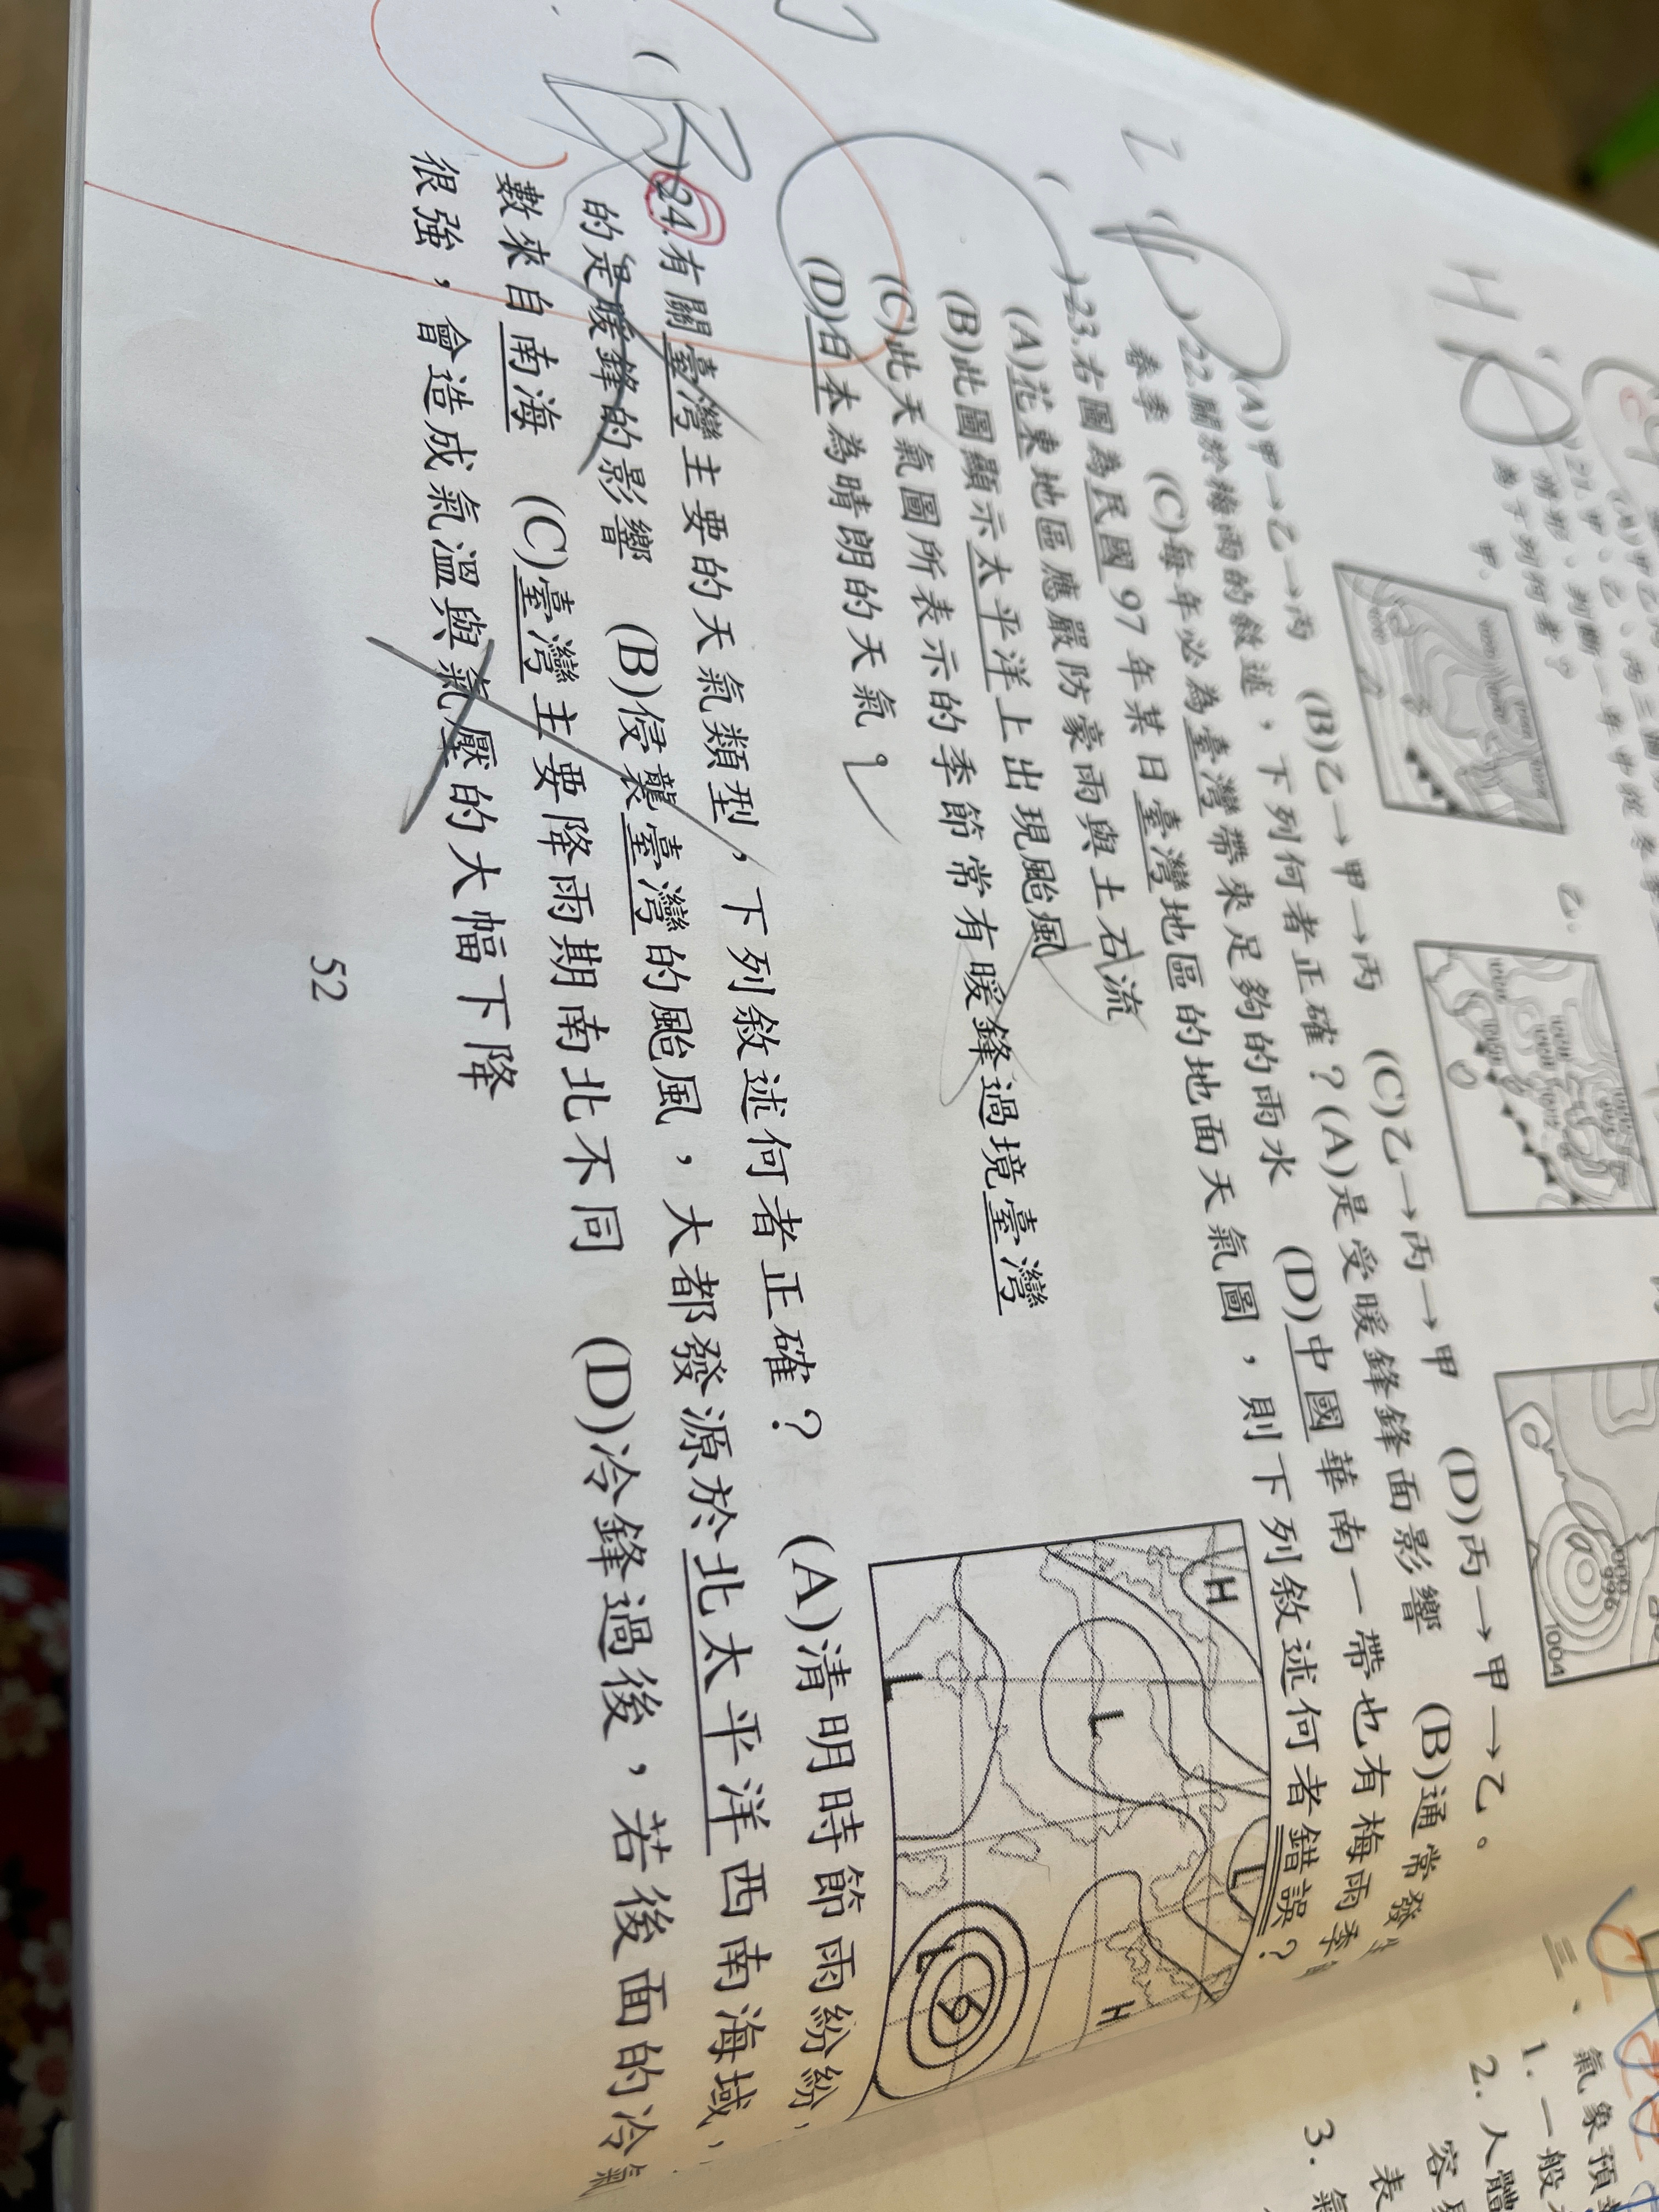 21.甲、乙、丙三圖
情形,判斷一年中從冬季
為下列何者?
甲、
乙、
1004
996
(A)甲→乙→丙 (B)乙→甲→丙 (C)乙→丙→甲 (D)丙→甲→乙。
22.關於梅雨的敘述,下列何者正確?(A)是受暖鋒鋒面影響 (B)通常發
春季 (C)每年必為臺灣帶來足夠的雨水 (D)中國華南一帶也有梅雨季
( )23.右圖為民國97年某日臺灣地區的地面天氣圖,則下列敘述何者錯誤?
(A)花東地區應嚴防豪雨與土石流
(B)此圖顯示太平洋上出現颱風
(C)此天氣圖所表示的季節常有暖鋒過境臺灣
(D)日本為晴朗的天氣。
H
L
L
H
L
L
( )24.有關臺灣主要的天氣類型,下列敘述何者正確? (A)清明時節雨紛紛,
的是暖鋒的影響 (B)侵襲臺灣的颱風,大都發源於北太平洋西南海域,
數來自南海 (C)臺灣主要降雨期南北不同 (D)冷鋒過後,若後面的冷氣
很強,會造成氣溫與氣壓的大幅下降
52
三、氣象預
1.一般
2.人體
容
表
3.氣